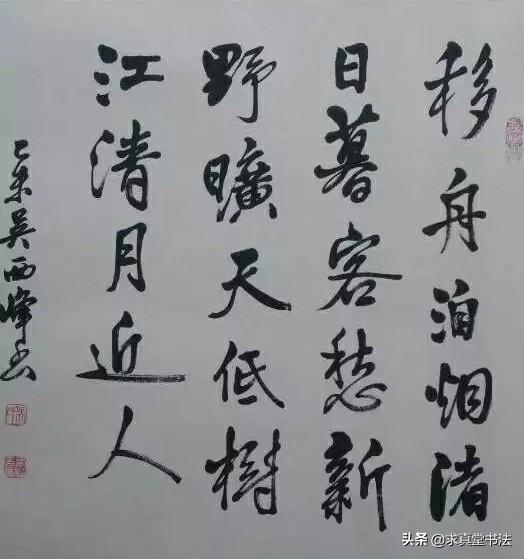 移舟泊烟渚
日暮客愁新
野曠天低樹
江清月近人
乙未吴西峰书
头条 @求真堂书法